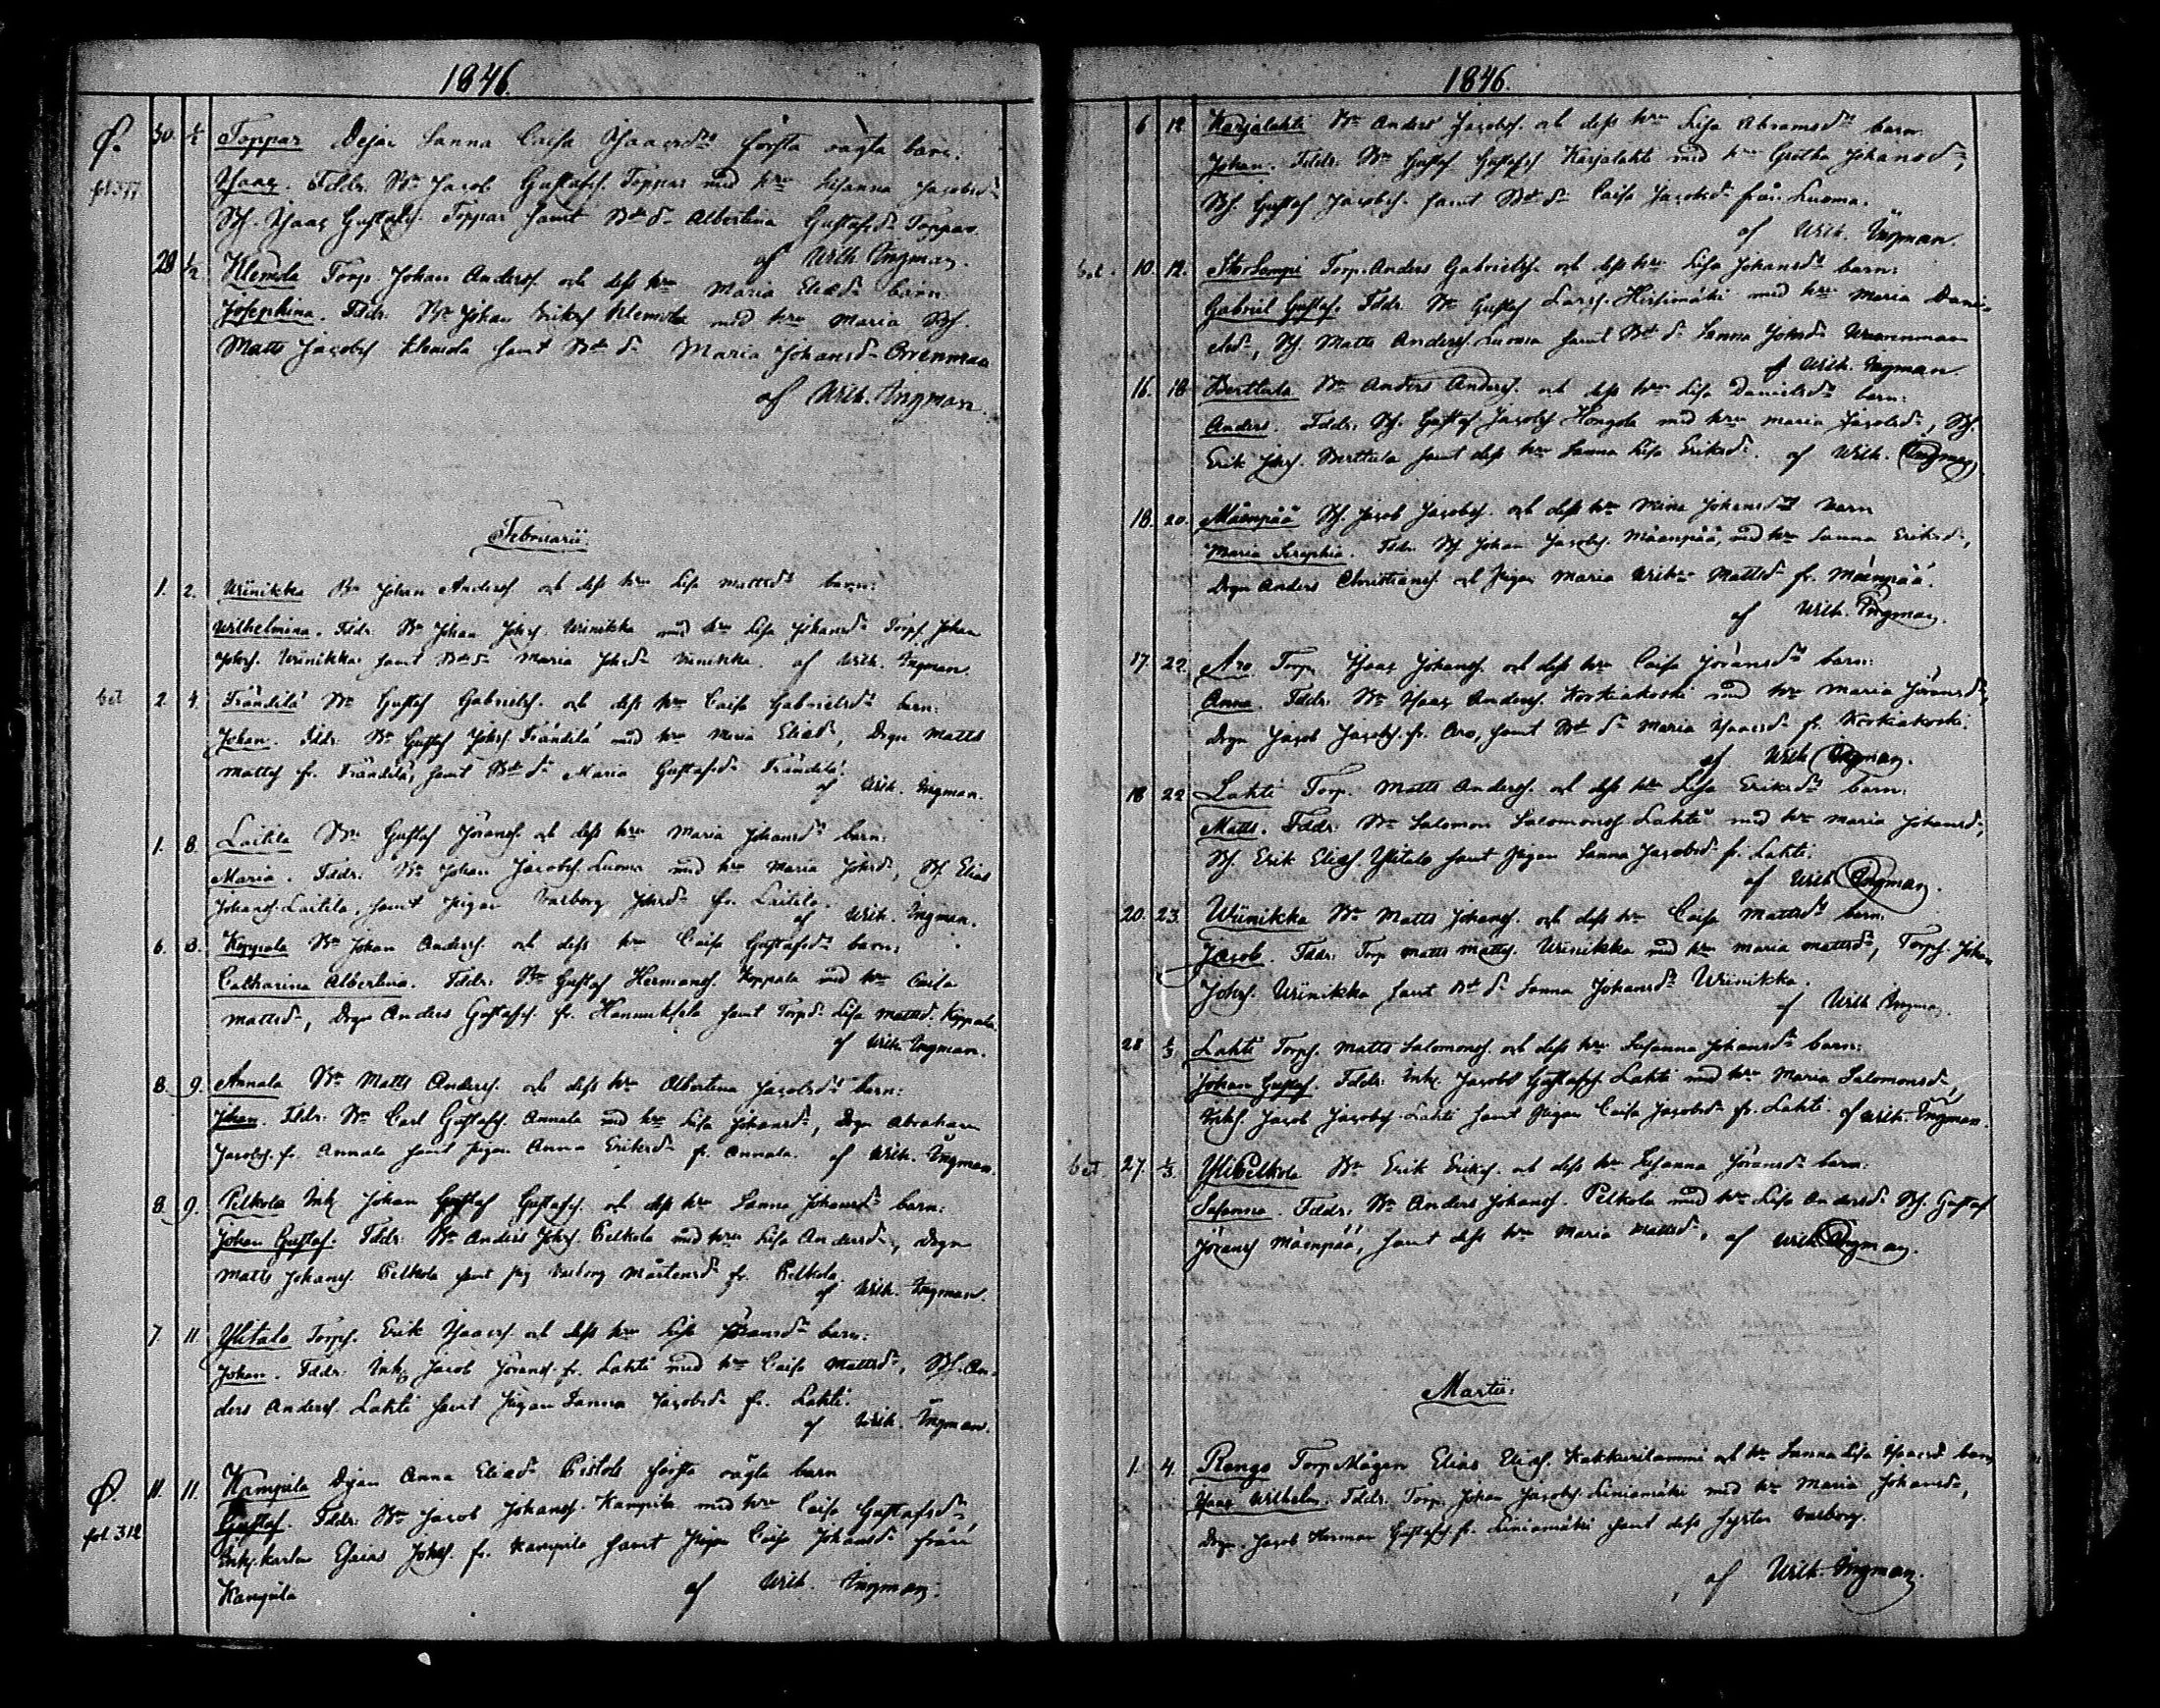 1846.
Ø. 30. 1/2 Toppar Dejan Sanna Caisa Isaacsd:s första oägta barn:
fol. 377 Isaac. Fddr. Bn Jacob Gustafss. Toppar med hru Susanna Jacobsd:
Bs. Isaac Gustafss. Toppar samt Bd:r Albertina Gustafsd: Toppar.
af Wilh. Ingman.
29 1/2 Klemola Torp. Johan Anderss. och dess hru Maria Eliæd: barn:
Josephina. Fddr. Bn Johan Erikss Klemola med hru Maria Bs.
Matts Jacobss Klemola samt Bd:r Maria Johansd:
af Wilh. Ingman.
Februarii.
1. 2. Wiinikka Bn Johan Anderss och dess hru Lisa Mattsd:s barn:
Wilhelmina. Fddr. Bn Johan Johss. Wiinikka med hru Lisa Johansd: Torps. Johan
Johss. Wiinikka samt Bd:r Maria Johsd: Wiinikka. af Wilh. Ingman.
bet 2. 4. Frändilä Bn Gustaf Gabrielss. och dess hru Caisa Gabrielsd:s barn:
Johan. Fddr. Bn Gustaf Johss. Frändilä med hru Maria Eliæd:, Drgn Matts
Mattss fr. Frändilä, samt Bd:r Maria Gustafsd: Frändilä.
af Wilh. Ingman.
1. 8. Laitila Bn Gustaf Jöranss. och dess hru Maria Johansd:s barn:
Maria. Fddr. Bn Johan Jacobss. Luoma med hru Maria Johsd:, Bs. Elias
Johanss. Laitila, samt pigan Walborg Johsd: fr. Laitila.
af Wilh. Ingman.
6. 8. Koppala Bn Johan Anderss. och dess hru Caisa Gustafsd:s barn:
Catharina Albertina. Fddr. Bn Gustaf Hermanss. Koppala med hru Caisa
Mattsd:, Drgn Anders Gustafss. fr. Hannuksela samt Torpd: Lisa Mattsd: Koppala.
af Wilh. Ingman.
8. 9. Annala Bn Matts Anderss. och dess hru Albertina Jacobsd:s barn:
Johan. Fddr. Bn Carl Gustafss. Annala med hru Lisa Johansd:, Drgn Abraham
Jacobss. fr. Annala samt pigan Anna Eriksd: fr. Annala. af Wilh. Ingman.
8. 9. Pelkola Inh. Johan Gustaf Gustafss. och dess hru Sanna Johansd:s barn:
Johan Gustaf. Fddr. Bn Anders Johss. Pelkola med hru Lisa Andersd:, Drgn
Matts Johanss. Pelkola samt pig. Walborg Mårtensd: fr. Pelkola.
af Wilh. Ingman.
7 11 Ylitalo Torps. Erik Isaacss. och dess hru Lisa Jöransd:s barn:
Johan. Fddr. Inh. Jacob Jöranss. fr. Lahti med hru Caisa Mattsd:, Bs. An-
ders Anderss. Lahti samt pigan Sanna Jacobsd: fr. Lahti.
af Wilh. Ingman.
Ø. 11. 11. Kampila Dejan Anna Eliæd: första oägta barn
fol. 312 Gustaf. Fddr. Bn Jacob Johanss. Kampila med hru Caisa Gustafsd:,
Inh. karlen Esaias Johss. fr. Kampila samt pigan Caisa Johansd: från
Kampila af Wilh. Ingman.
1846.
6 12 Karjalahti Bn Anders Jacobss. och dess hru Lisa Abramsd:s barn:
Johan. Fddr. Bn Gustaf Gustafss Karjalahti med hru Gretha Johansd:,
Bs. Gustaf Jacobss. samt Bd:r Caisa Jacobsd: från Luoma.
af Wilh. Ingman.
bet. 10. 12. StorLampi Torp. Anders Gabrielss. och dess hru Lisa Johansd:s barn:
Gabriel Gustaf. Fddr. Bn Gustaf Larss. Hirsimäki med hru Maria Dani-
elsd:, Bs. Matts Anderss. Luoma samt Bd:r Sanna Johsd: Wuorenmaa
af Wilh. Ingman.
16. 18 Berttula Bn Anders Anderss. och dess hru Lisa Danielsd:s barn:
Anders. Fddr. Bs. Gustaf Jacobss Hongola med hru Maria Jacobsd:, Bs.
Erik Johss. Berttula samt dess hru Sanna Lisa Eriksd:. af Wilh. Ingman
18. 20. Mäenpää Bs. Jacob Jacobss. och dess hru Mina Johansd:s barn
Maria Seraphia. Fddr. Bs Johan Jacobss. Mäenpää, med hru Sanna Eriksd:,
Drgn Anders Christianss. och pigan Maria Mattsd: fr. Mäenpää.
af Wilh. Ingman.
17. 22. Aro Torp. Isaac Johanss. och dess hru Caisa Jöransd:s barn:
Anna. Fddr. Bn Isaac Anderss. Korkiakoski med hru Maria Jöransd:,
Drgn Jacob Jacobss. fr. Aro, samt Bd:r Maria Isaacsd: fr. Korkiakoski.
af Wilh. Ingman.
18 22 Lahti Torp. Matts Anderss. och dess hru Lisa Eriksd:s barn:
Matts. Fddr. Bn Salomon Salomonss. Lahti med hru Maria Johansd:,
Bs. Erik Eliæs. Ylitalo samt pigan Sanna Jacobsd: fr. Lahti.
af Wilh Ingman.
20. 23. Wiinikka Bn Matts Johanss. och dess hru Caisa Mattsd:s barn:
Jacob. Fddr. Torp. Matts Mattss. Wiinikka med hru Maria Mattsd:, Torps. Johan
Johss. Wiinikka samt Bd:r Sanna Johansd: Wiinikka.
af Wilh Ingman.
28 1/3 Lahti Torps. Matts Salomonss. och dess hru Susanna Johansd:s barn:
Johan Gustaf. Fddr. Inh. Jacob Gustafss. Lahti med hru Maria Salomonsd:,
Inhs. Jacob Jacobss. Lahti samt pigan Caisa Jacobsd: fr. Lahti. af Wilh. Ingman.
bet. 27. 1/3. YliPelkola Bn Erik Erikss. och dess hru Susanna Jöransd:s barn:
Susanna. Fddr. Bn Anders Johanss. Pelkola med hru Lisa Andersd: Bs. Gustaf
Jöranss Mäenpää, samt dess hru Maria Mattsd:, af Wilh Ingman.
Martii:
1. 4. Rango Torp.Mågen Elias Eliæs. Kakkurilammi och hru Sanna Lisa Isaacsd: barn
Isaac Wilhelm. Fddr. Torp. Johan Jacobss. Liniamäki med hru Maria Johansd:,
Drgn Jacob Herman Gustafss. fr. Liniamäki samt dess syster Walborg.
af Wilh. Ingman.